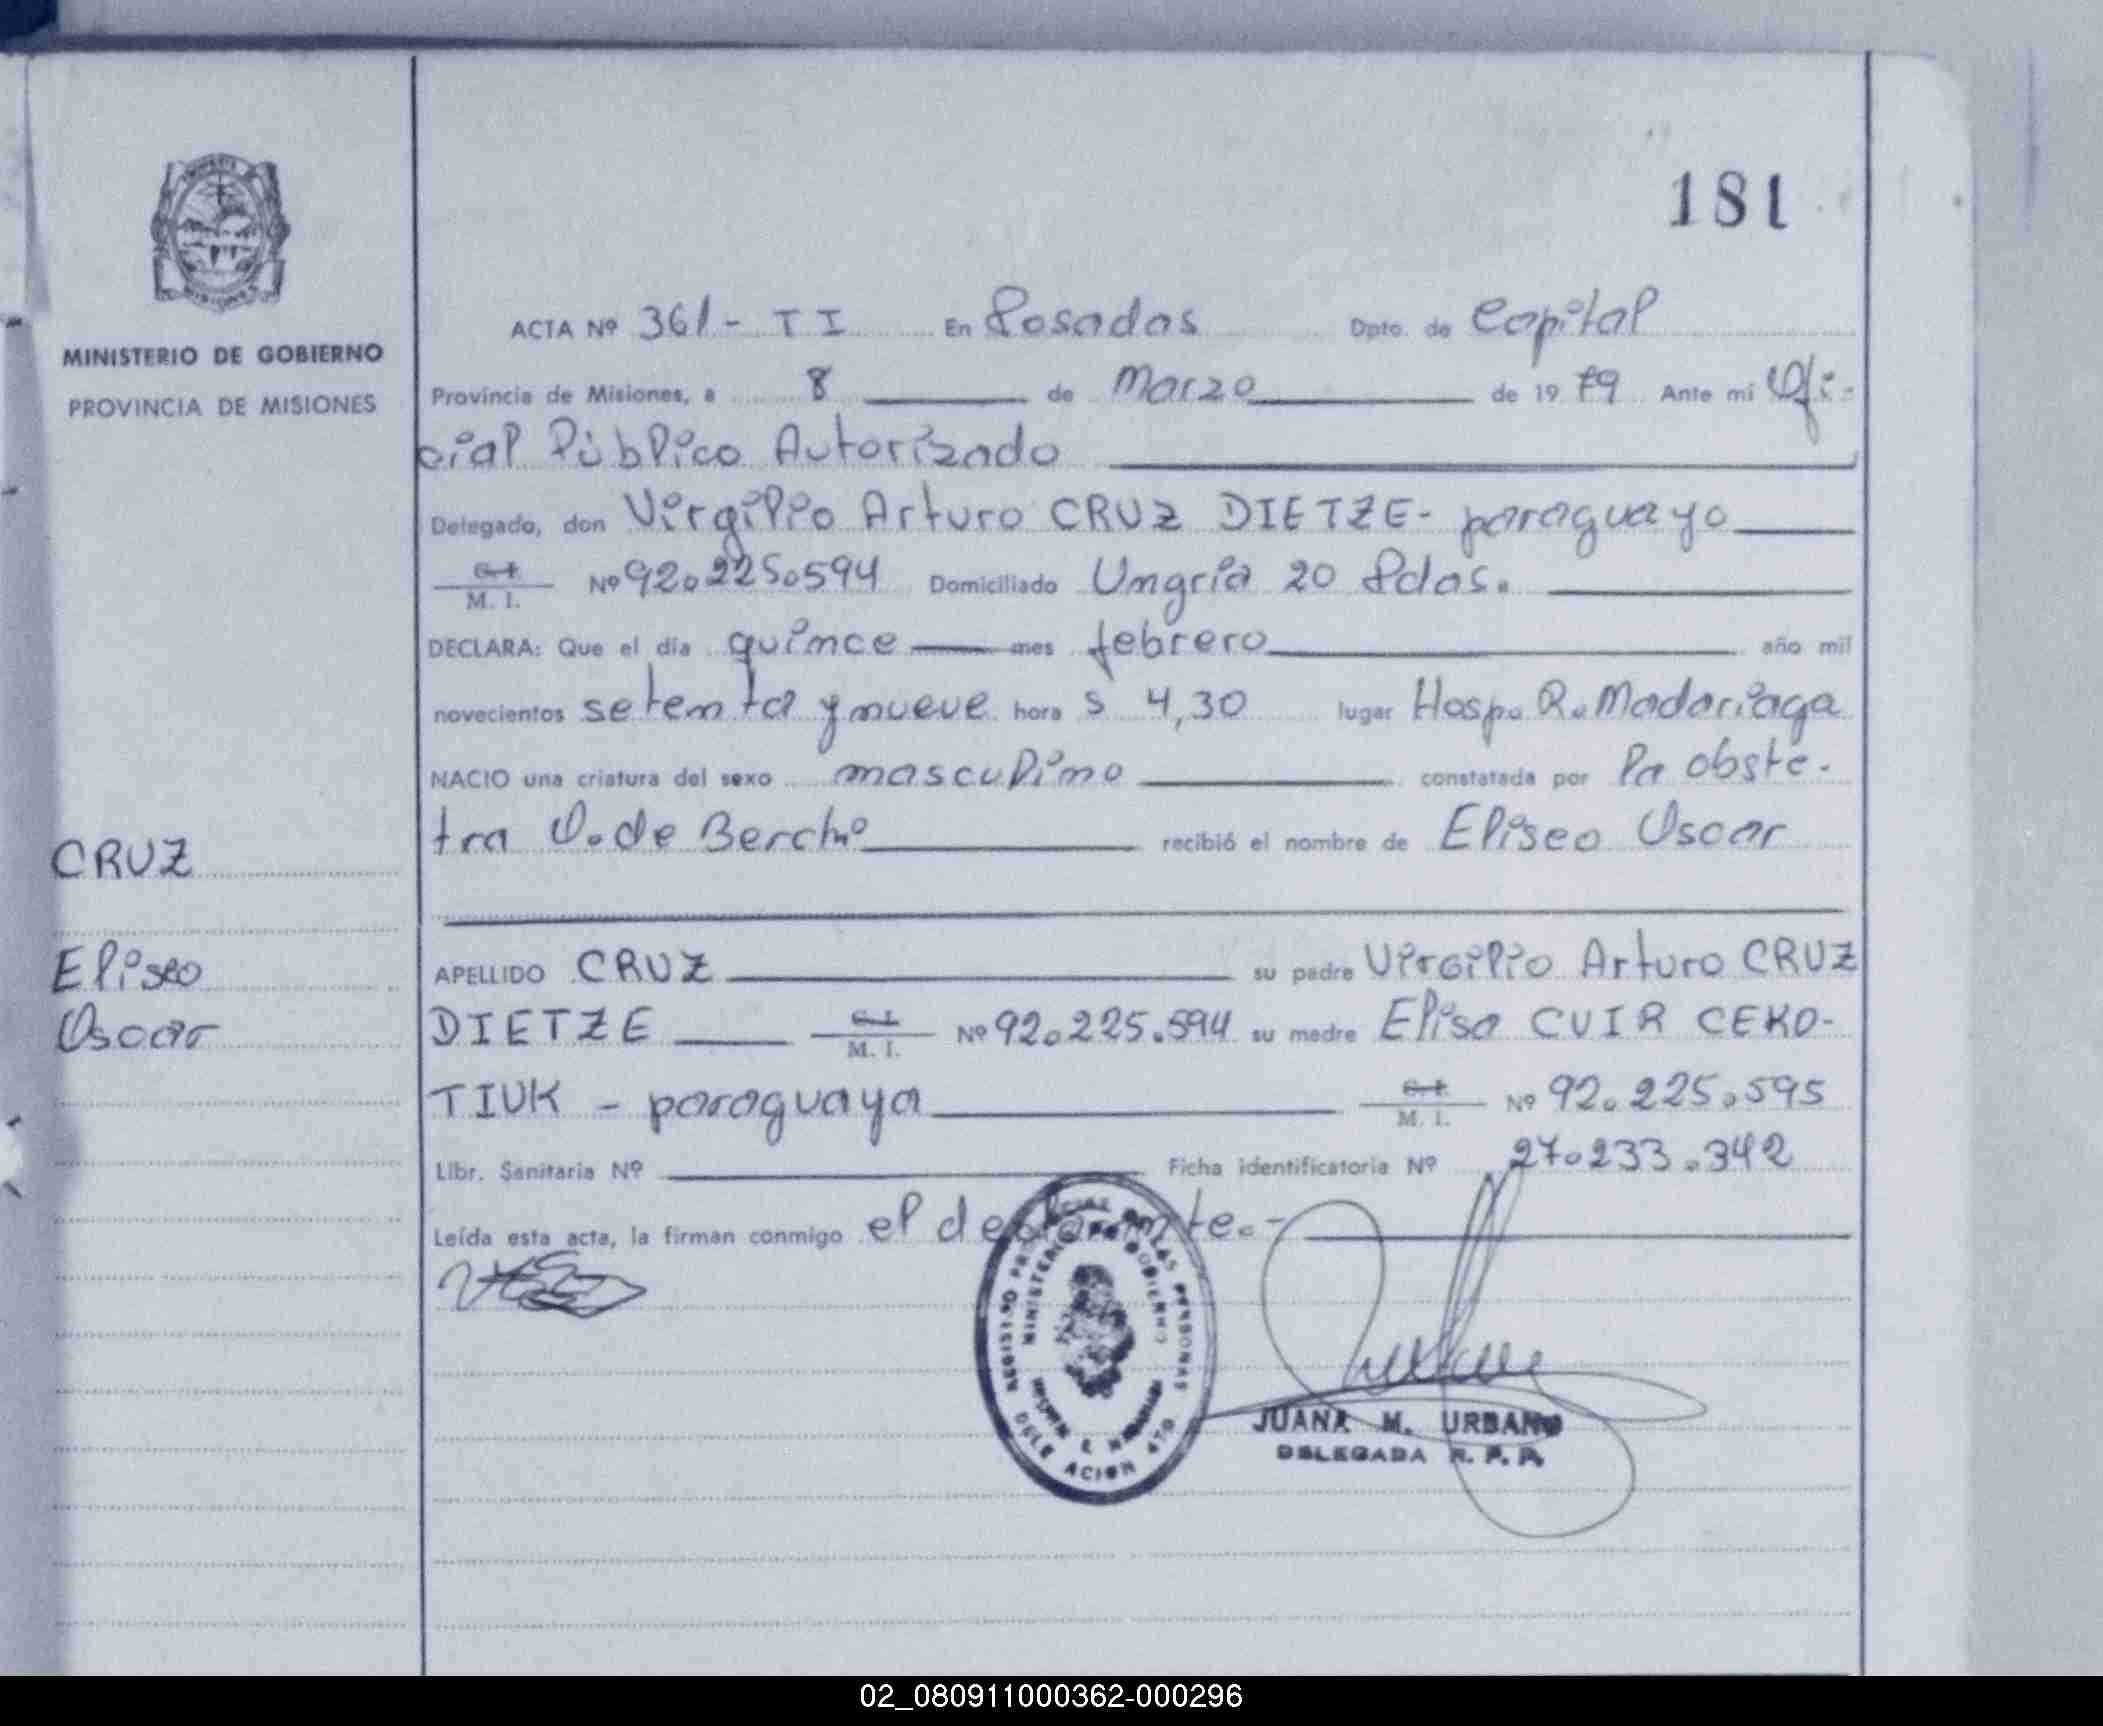 181
MINISTERIO DE GOBIERNO
PROVINCIA DE MISIONES
ACTA Nº 361- TI En Posadas Dpto. de Capital
Provincia de Misiones, a 8 de Marzo de 1979 Ante mi Ofi-
cial Público Autorizado
Delegado, don Virgilio Arturo CRUZ DIETZE- paraguayo
C.I. M. I. Nº 92.225.594 Domiciliado Ungria 20 Pdas.
DECLARA: Que el día quince mes febrero año mil
novecientos setenta y nueve hora s 4,30 lugar Hosp. R. Madariaga
NACIO una criatura del sexo masculino constatada por la obste-
tra O. de recibió el nombre de Eliseo Oscar
CRUZ
Eliseo
Oscar
APELLIDO CRUZ su padre Virgilio Arturo CRUZ
DIETZE C.I. M. I. Nº 92.225.594 su madre Elisa CUIR CEKO-
TIUK - paraguaya C.I. M. I. Nº 92.225.595
Libr. Sanitaria Nº Ficha identificatoria Nº 27.233.342
Leída esta acta, la firman conmigo el declarante.-
MINISTERIO DE GOBIERNO
JUANA M. URBANO
DELEGADA R. P. P.
02_080911000362-000296